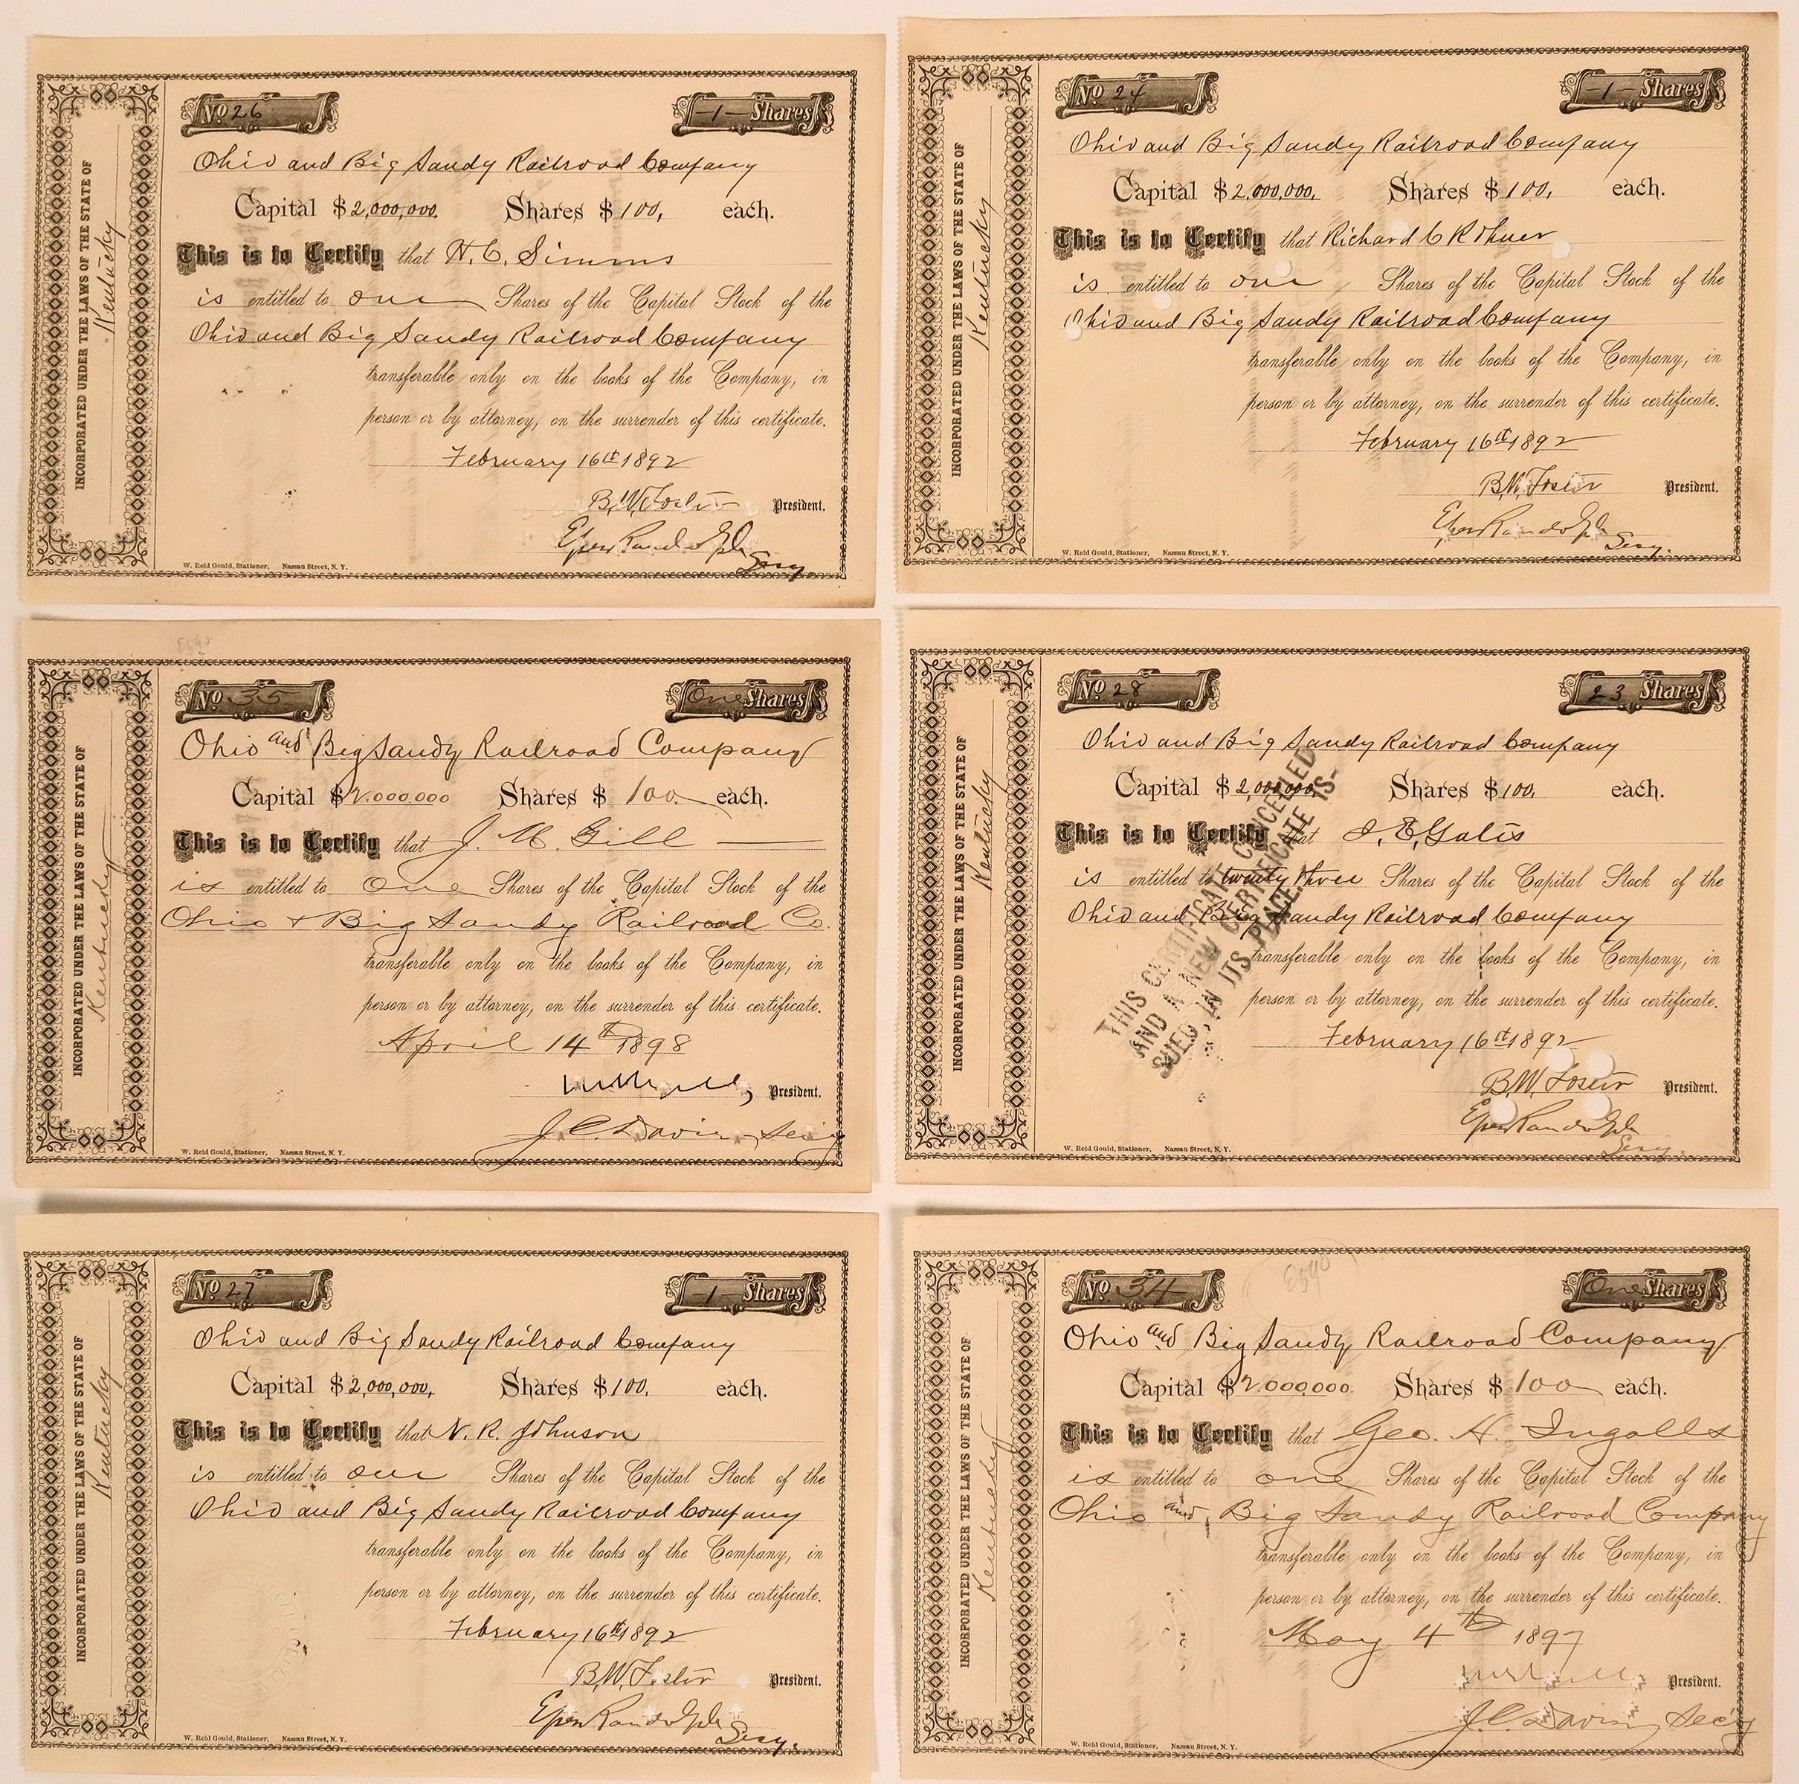 INCORPORATED UNDER THE LAWS OF THE STATE OF
Kentucky
No 26
-1- Shares
Ohio and Big Sandy Railroad Company
Capital $2,000,000. Shares $100, each.
This is to Certify that N. C. Simms
is entitled to one Shares of the Capital Stock of the
Ohio and Big Sandy Railroad Company
transferable only on the books of the Company, in
person or by attorney, on the surrender of this certificate.
February 16th 1892
B. W. Foster President.
Epes Randolph
Secy.
W. Reid Gould, Stationer, Nassau Street, N. Y.
INCORPORATED UNDER THE LAWS OF THE STATE OF
Kentucky
No 24
-1- Shares
Ohio and Big Sandy Railroad Company
Capital $2,000,000, Shares $100, each.
This is to Certify that Richard C
is entitled to one Shares of the Capital Stock of the
Ohio and Big Sandy Railroad Company
transferable only on the books of the Company, in
person or by attorney, on the surrender of this certificate.
February 16th 1892
B. W. Foster President.
Epes Randolph
Secy.
W. Reid Gould, Stationer, Nassau Street, N. Y.
INCORPORATED UNDER THE LAWS OF THE STATE OF
Kentucky
No 35
One Shares
Ohio and Big Sandy Railroad Company
Capital $2.000.000 Shares $ 100. each.
This is to Certify that J. M. Gill
is entitled to One Shares of the Capital Stock of the
Ohio & Big Sandy Railroad Co.
transferable only on the books of the Company, in
person or by attorney, on the surrender of this certificate.
April 14th 1898
President.
J. C. Davis, Secy
W. Reid Gould, Stationer, Nassau Street, N. Y.
INCORPORATED UNDER THE LAWS OF THE STATE OF
Kentucky
No 28
23 Shares
Ohio and Big Sandy Railroad Company
Capital $2,000,000, Shares $100, each.
This is to Certify that I. E. Gates
is entitled to twenty three Shares of the Capital Stock of the
Ohio and Big Sandy Railroad Company
transferable only on the books of the Company, in
person or by attorney, on the surrender of this certificate.
February 16th 1892
B. W. Foster President.
Epes Randolph
Secy.
W. Reid Gould, Stationer, Nassau Street, N. Y.
THIS CERTIFICATE CANCELLED
AND A NEW CERTIFICATE IS-
SUED IN ITS PLACE.
INCORPORATED UNDER THE LAWS OF THE STATE OF
Kentucky
No 27
-1- Shares
Ohio and Big Sandy Railroad Company
Capital $2,000,000, Shares $100. each.
This is to Certify that N. R. Johnson
is entitled to one Shares of the Capital Stock of the
Ohio and Big Sandy Railroad Company
transferable only on the books of the Company, in
person or by attorney, on the surrender of this certificate.
February 16th 1892
B. W. Foster President.
Epes Randolph
Secy.
W. Reid Gould, Stationer, Nassau Street, N. Y.
INCORPORATED UNDER THE LAWS OF THE STATE OF
Kentucky
No 34
One Shares
Ohio and Big Sandy Railroad Company
Capital $2.000.000. Shares $100 each.
This is to Certify that Geo. H. Ingalls
is entitled to one Shares of the Capital Stock of the
Ohio and Big Sandy Railroad Company
transferable only on the books of the Company, in
person or by attorney, on the surrender of this certificate.
May 4th 1897
President.
J. C. Davis, Secy
W. Reid Gould, Stationer, Nassau Street, N. Y.